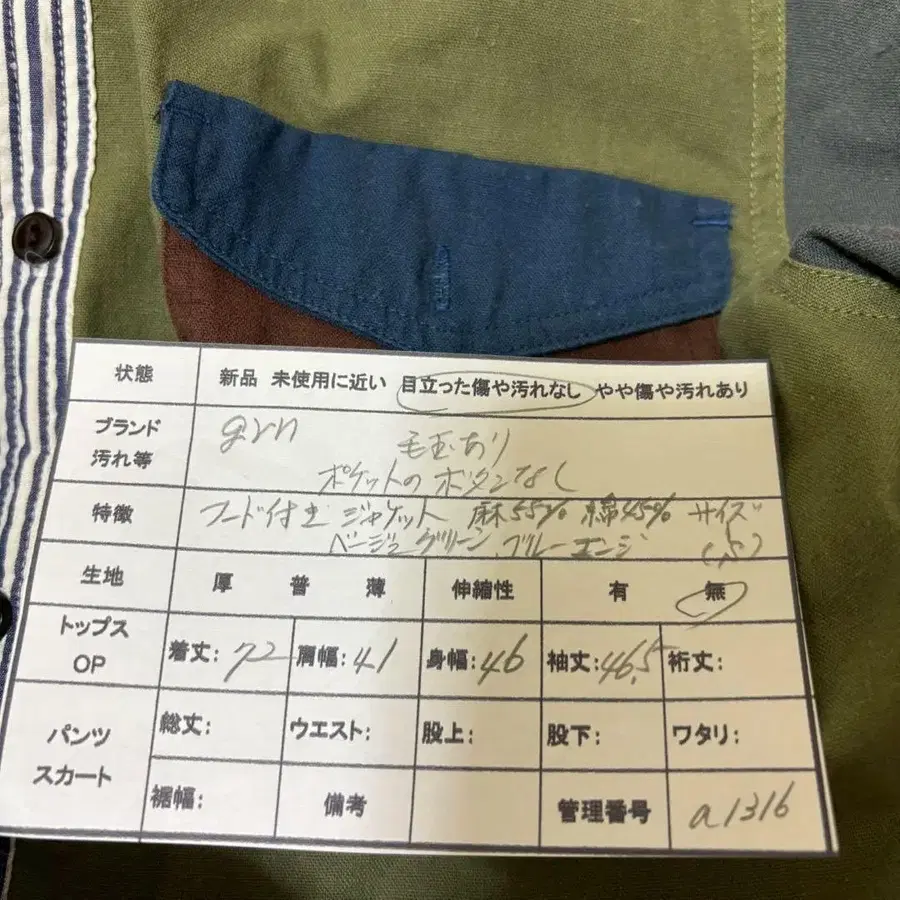 状態 新品 未使用に近い 目立った傷や汚れなし やや傷や汚れあり
ブランド 汚れ等 grn 毛玉あり
ポケットのボタンなし
特徴 フード付き ジャケット 麻55% 綿45% サイズ
ベージュ グリーン ブルー エンジ
生地 厚 普 薄 伸縮性 有 無
トップス OP 着丈: 72 肩幅: 41 身幅: 46 袖丈: 46.5 裄丈:
パンツ スカート 総丈: ウエスト: 股上: 股下: ワタリ:
裾幅: 備考 管理番号 a1316